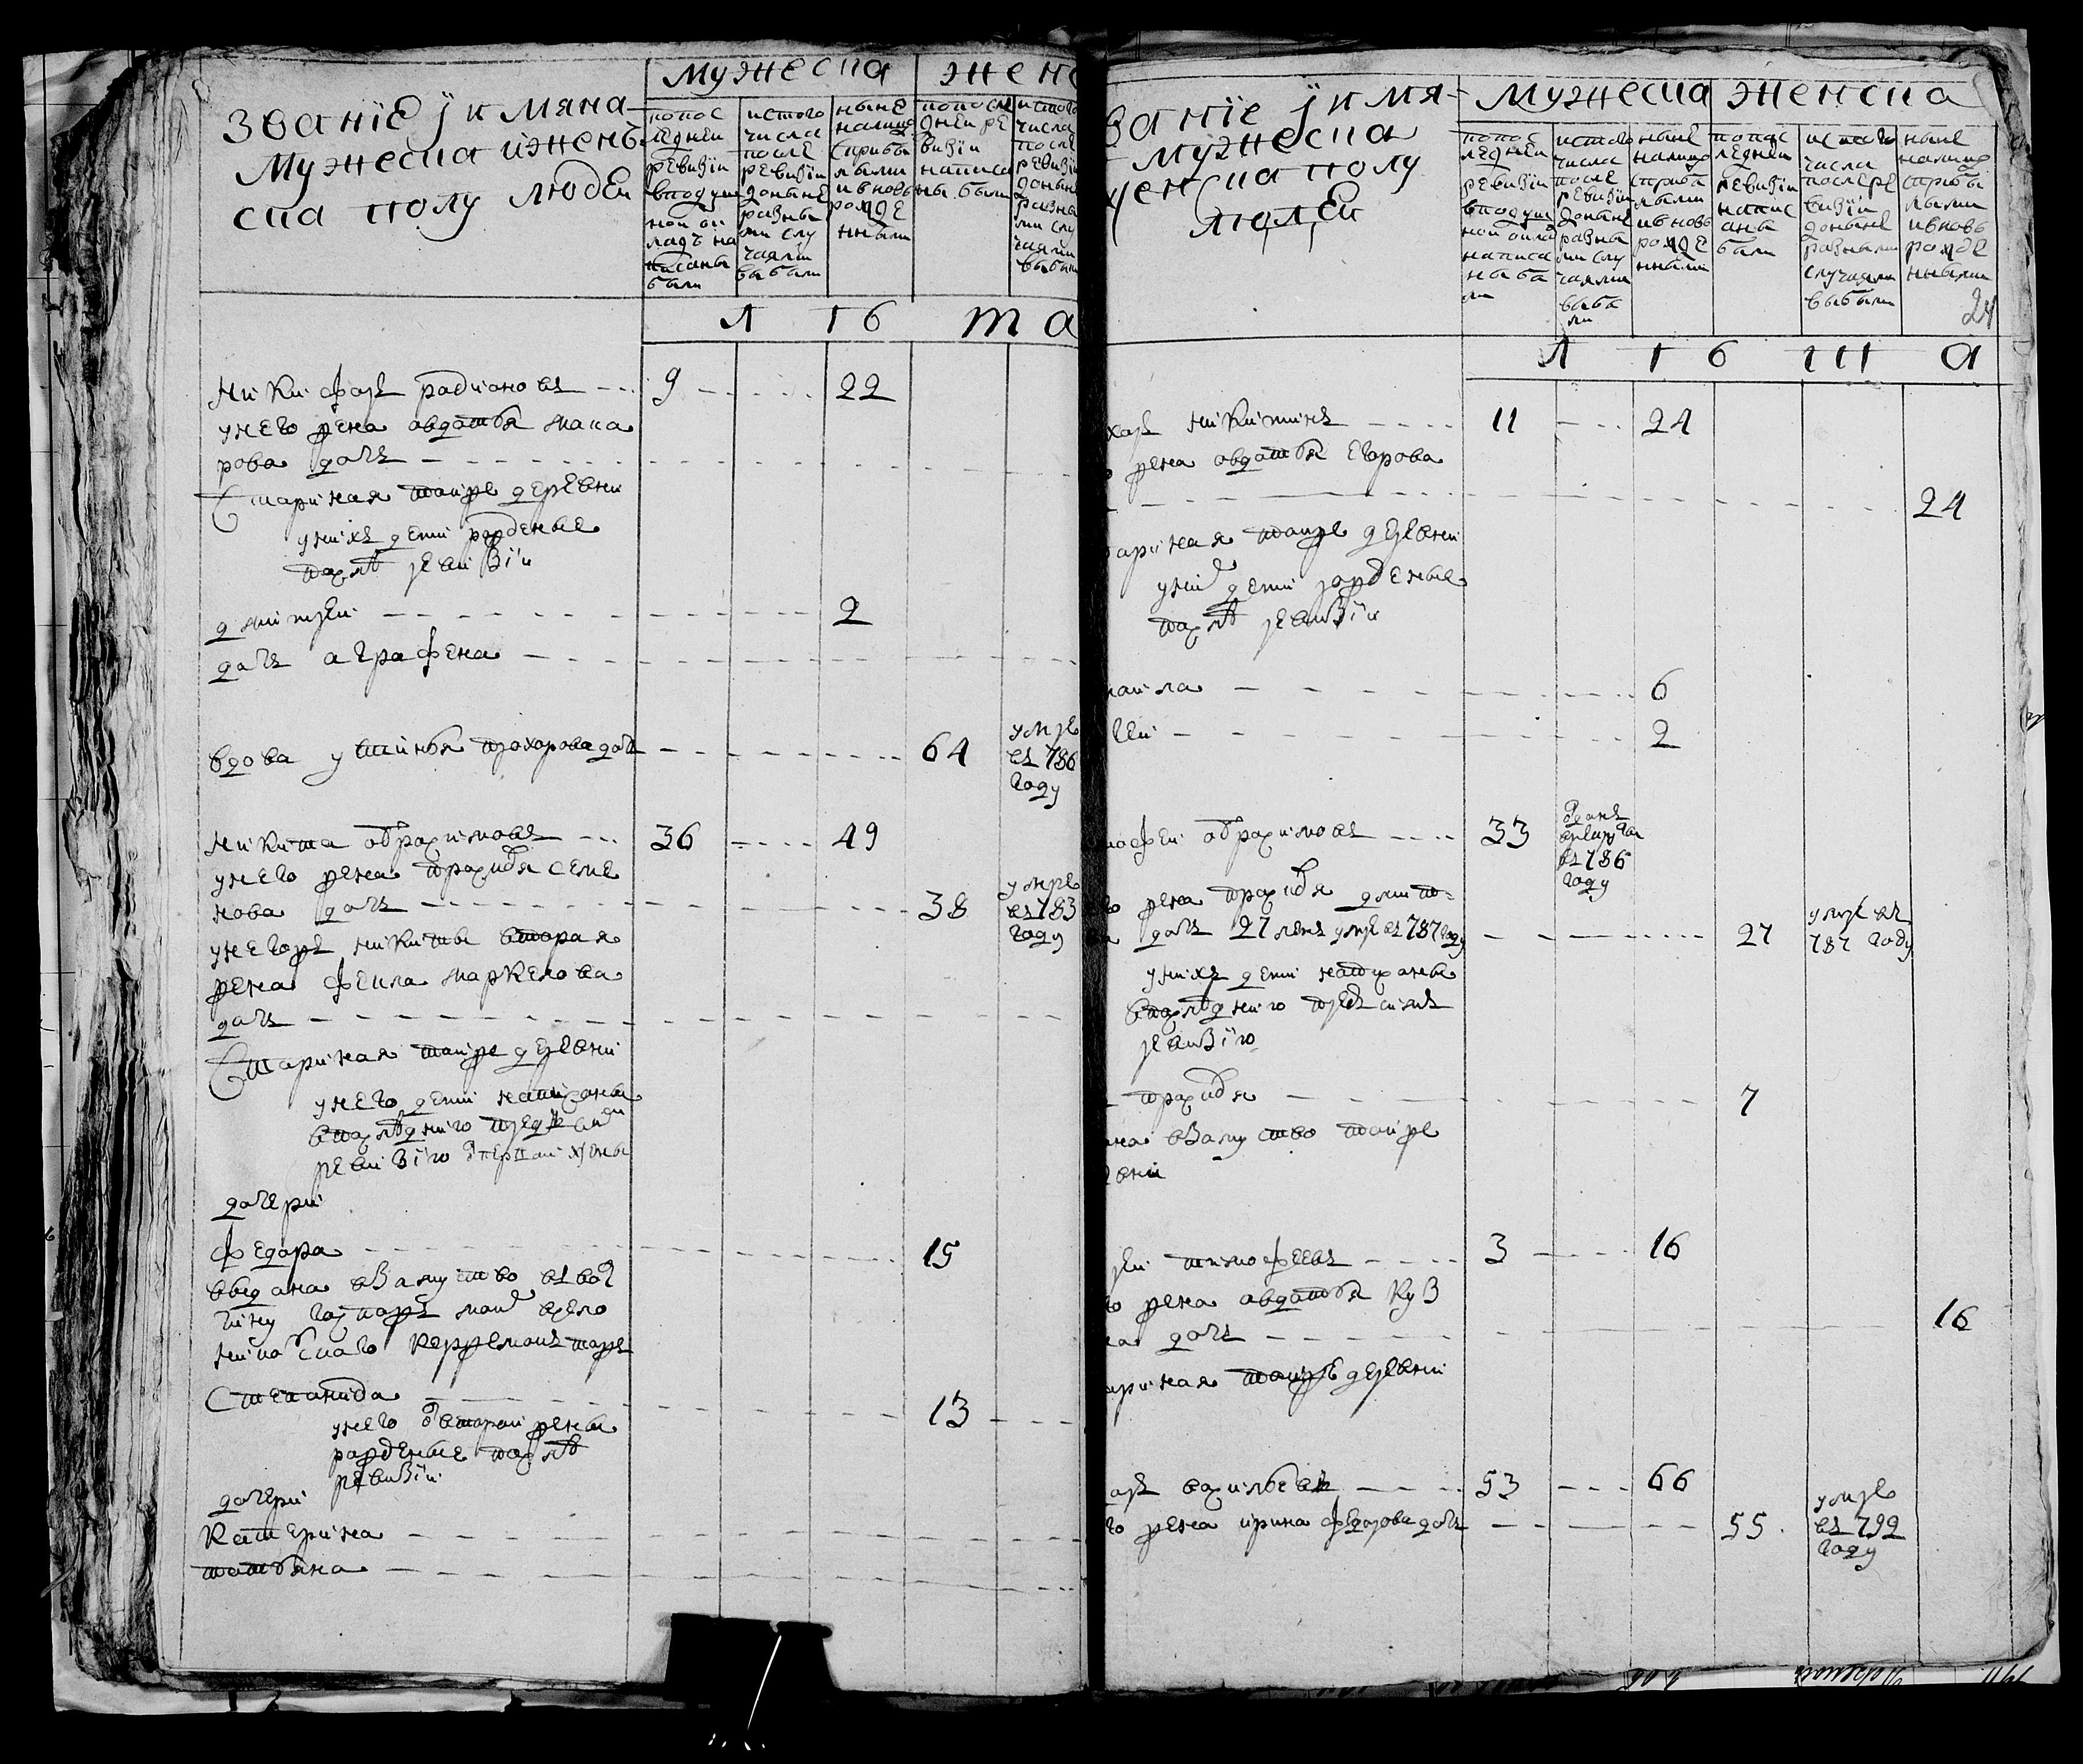 Звание ї имяна
Мужеска иженъ
ска полу людеи
Мужеска
женс
попос
леднеи
ревизїи
вподуш
ной ок
ладъ на
писаны
были
истого
числа
после
ревизїи
доныне
разны
ми слу
чаями
выбыли
ныне
налицо
сприбы
лыми
ивновь
рожде
нными
попосле
днеи ре
визїи
написа
ны были
истого
числа
после
ревизїи
доныне
разны
ми слу
чаями
выбыли
л т б т а
Никифаръ радионовъ 9 22
унего жена авдотья мака
рова дочь
Старинная тоижъ деревни
унихъ дети рожденые
послѣ ревизїи
дмитреи 2
дочь аграфена
вдова устинья прохорова дочь 64 умре
въ 786
году
Никита абросимовъ 36 49
унего жена прасковья семе
нова дочь 38 умре
въ 783
году
унегожъ никиты вторая
жена фекла маркелова
дочь
Старинная тоижъ деревни
унего дети написаны
впослѣднюю пред сим
ревизїю от первои жены
дочери
федора 15
выдана взамуство въ вот
чину
Степанида 13
унего от второи жены
рожденые послѣ
ревизїи
дочери
Катерина
татьяна
вание ї имя
Мужеска
женска полу
людеи
Мужеска женска
попос
леднеи
ревизїи
вподуш
ной окла
написа
ны бы
ли
истого
числа
после
ревизїи
доныне
разны
ми слу
чаями
выбы
ли
ныне
налицо
сприбы
лыми
ивновь
рожде
нными
попос
леднеи
ревизїи
напис
аны
были
истого
числа
послере
визїи
доныне
разными
случаями
выбыли
ныне
налицо
сприбы
лыми
ивновь
рожде
нными
24
л т б т а
харъ никитинъ 11 24
жена авдотья егорова
24
аринная тоижъ деревни
уних дети рожденые
послѣ ревизїи
наила 6
геи 2
мофеи абросимовъ 33 отданъ
врекруты
въ 786
году
го жена прасковья дмит
дочь 27 летъ умре въ 787 году 27 умре въ
787 году
унихъ дети написаны
впослѣднюю пред симъ
ревизїю
прасковья 7
на взамуство тоиже
вни
реи тимофеевъ 3 16
го жена авдотья куз
на дочь 16
аринная тоижъ деревни
аръ васильевъ 53 66
го жена ирина федорова дочь 55 умре
въ 792
году